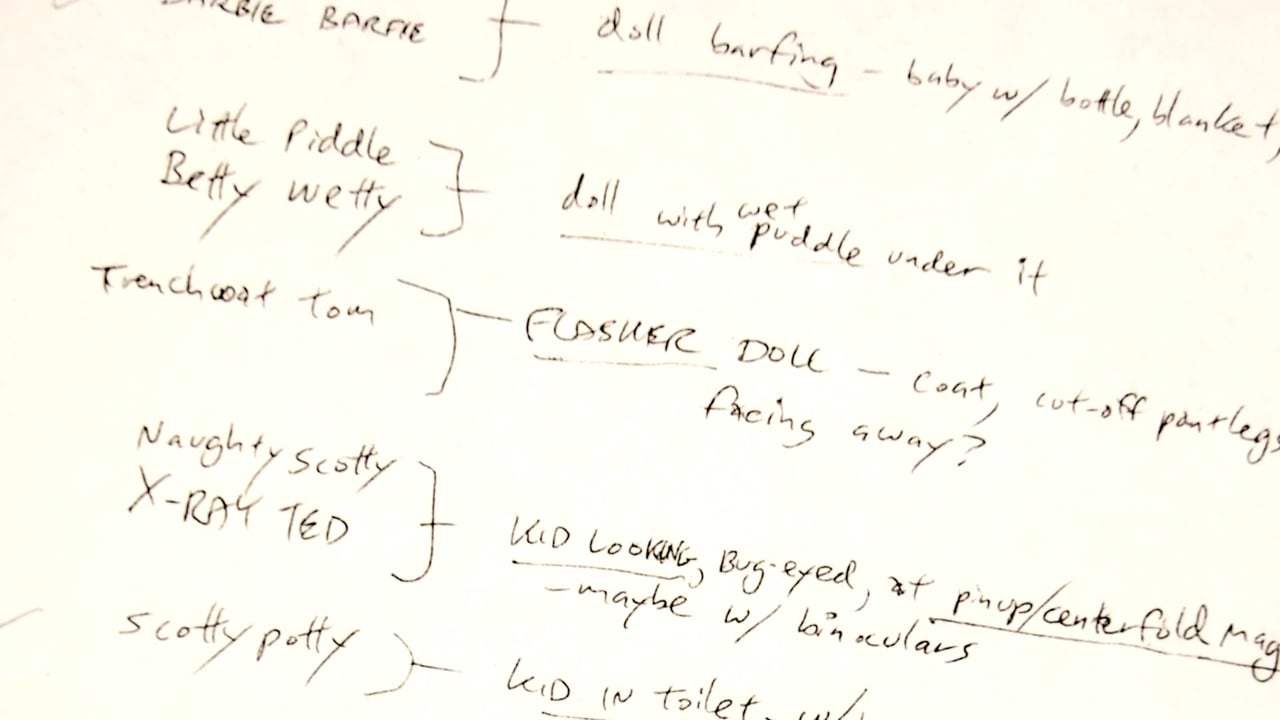 BARBIE BARFIE
doll barfing - baby w/ bottle, blanket,
Little Piddle
Betty Wetty
doll with wet
puddle under it
Trenchcoat Tom
FLASHER DOLL - coat, cut-off pantlegs
facing away?
Naughty Scotty
X-RAY TED
KID LOOKING, Bug-eyed, at pinup/centerfold mag
- maybe w/ binoculars
Scotty potty
KID IN toilet, w/